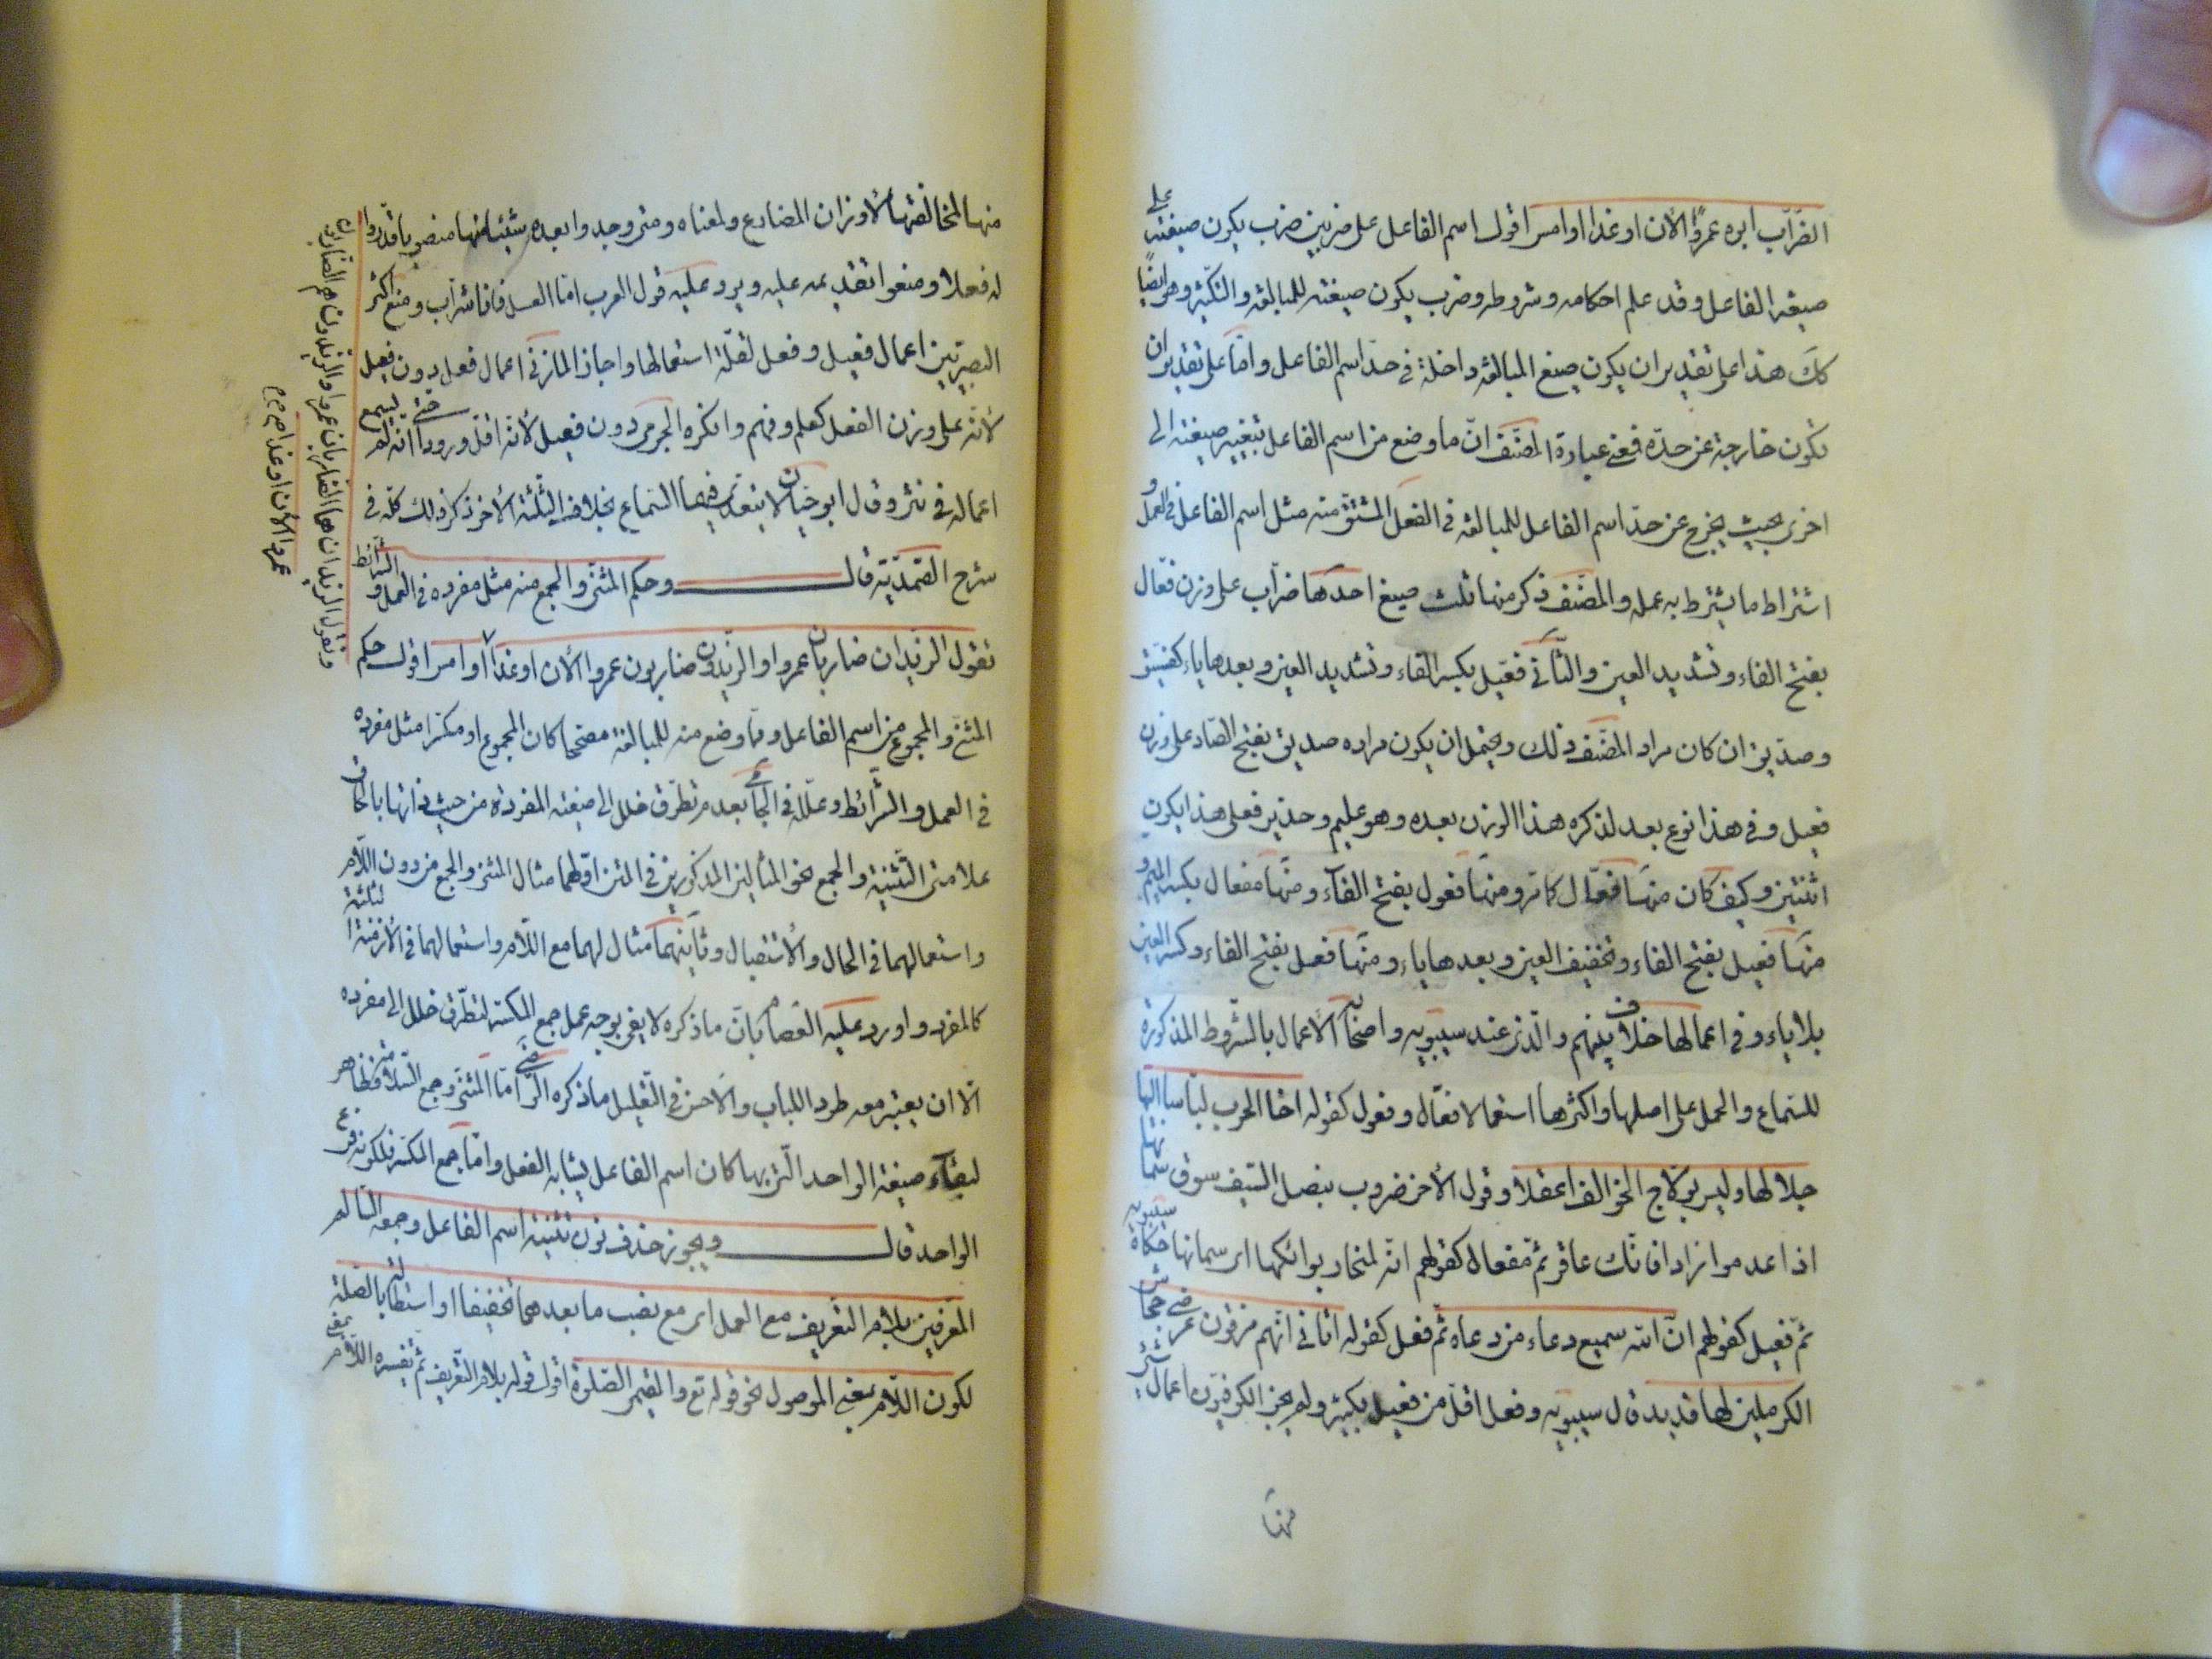 الضرّاب ابوه عمروًا الآن او غدا او امس اقول اسم الفاعل على ضربين ضرب يكون صيغته على
صيغة الفاعل وقد علم احكامه وشروطه وضرب يكون صيغته للمبالغة والتكثير وهو ايضًا
كك هذا على تقدير ان يكون صيغ المبالغة داخلة في حدّ اسم الفاعل وامّا على تقدير ان
تكون خارجة عن حدّه فمعنى عبارة المصنّف انّ ما وضع من اسم الفاعل بتغيير صيغته الى
اخرى بحيث يخرج عن حدّ اسم الفاعل للمبالغة في الفعل المشتق منه مثل اسم الفاعل في العمل و
اشتراط ما يشترط به عمله والمصنّف ذكر منها ثلث صيغ احدها ضرّاب على وزن فعّال
بفتح الفاء وتشديد العين والثّاني فعّيل بكسر الفاء وتشديد العين وبعدها ياء كفسّيق
وصدّيق ان كان مراد المصنّف ذلك ويحتمل ان يكون مراده صديق بفتح الصّاد على وزن
فعيل وفي هذا نوع بعد لذكره هذا الوزن بعده وهو عليم وحذير فعلى هذا يكون
اثنتين وكيف كان منها فعّال كما مر ومنها فعول بفتح الفآء ومنها مفعال بكسر الميم و
منها فعيل بفتح الفاء وتخفيف العين وبعدها ياء ومنها فعل بفتح الفاء وكسر العين
بلا ياء وفي اعمالها خلاف بينهم والّذي عند سيبويه واصحابه الاعمال بالشّروط المذكورة
للسّماع والحمل على اصلها واكثرها استعمالا فعّال وفعول كقوله اخا الحرب لبّاسا اليها
جلالها وليس بولّاج الخوالف اعقلا وقول الآخر ضروب بنصل السّيف سوق سمانها
اذا عدموا زادا فانّك عاقر ثمّ مفعال كقولهم انّه لمنحار بوائكها اى سمانها حكاه سيبويه
ثمّ فعيل كقولهم انّ الله سميع دعاء من دعاه ثمّ فعل كقوله اتاني انّهم مزقون عرضي جحاش
الكرملين لها فديد قال سيبويه وفعل اقلّ من فعيل بكثير ولم يجز الكوفيّون اعمال شئ
منها
منها لمخالفتها لأوزان المضارع ولمعناه ومتى وجدوا بعده شيئا منها منصوبا قدّروا
له فعلا ومنعوا تقديمه عليه ويرد عليه قول العرب امّا العسل فانا شرّاب ومنع اكثر
البصريّين اعمال فعيل وفعل لقلّة استعمالها واجاز المازني اعمال فعل دون فعيل
لأنّه على وزن الفعل كعلم وفهم وانكره الجرمي دون فعيل لأنّه اقلّ ورودا حتّى انّه لم يسمع
اعماله في نثر وقال ابو حيّان لا يتعدّى فيهما السّماع بخلاف الثّلثة الأخر ذكر ذلك كلّه في
شرح الصّمديّة قال وحكم المثنّى والجمع منه مثل مفرده في العمل والشّرائط
تقول الزّيدان ضاربان عمروا والزّيدون ضاربون عمروا الآن او غدًا او امس اقول حكم
المثنّى والمجموع من اسم الفاعل وممّا وضع منه للمبالغة مصحّحا كان المجموع او مكسّرا مثل مفرده
في العمل والشّرائط وعلّله في الجامي بعدم تطرّق خلل الى صيغته المفردة من حيث ذاتها بالحاق
علامتى التّثنية والجمع نحو المثالين المذكورين في المتن اوّلهما مثال المثنّى والجمع من دون اللّام
واستعمالهما في الحال والأستقبال وثانيهما مثال لهما مع اللّام واستعمالهما في الأزمنة الثلثة
كالمفرد واورد عليه العصام بانّ ما ذكره لا يفى بوجه عمل جمع المكسّر لتطرّق خلل الى مفرده
الّا ان يعتبر معه طرد اللباب والأحسن في التّعليل ما ذكره الرّضي امّا المثنّى وجمع السّلامة فظاهر
لبقآء صيغة الواحد الّتى بها كان اسم الفاعل يشابه الفعل وامّا جمع المكسّر فلكونه فرع
الواحد قال ويجوز حذف نون تثنية اسم الفاعل وجمعه السّالم
المعرّفين بلام التّعريف مع العمل اى مع نصب ما بعدهما تخفيفا او استطالة بالصّلة
لكون اللّام بمعنى الموصول نحو قوله تع والمقيمى الصّلوة اقول قوله بلام التّعريف ثمّ تفسيره اللّام بمعنى
وتقول الزيدان هما الضاربان عمروا والزيدون هم الضاربون
عمروا الآن او غدا